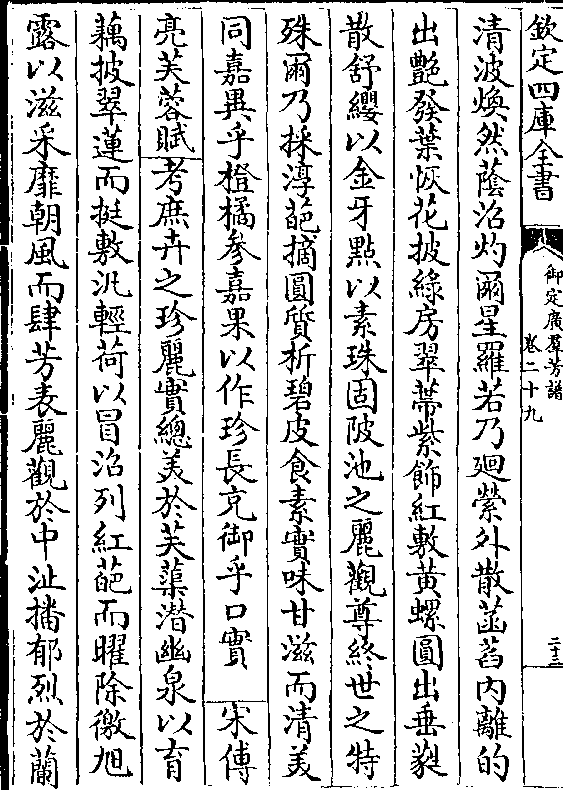 欽定四庫全書
御定廣羣芳譜
卷二十九
二十三
清波煥然蔭沼灼爾星羅若乃廻縈外散菡萏内離的
出艶發葉恢花披綠房翠蔕紫飾紅敷黄螺圓出垂蕤
散舒纓以金牙點以素珠固陂池之麗觀尊終世之特
殊爾乃採淳葩摘圓質析碧皮食素實味甘滋而清美
同嘉異乎橙橘參嘉果以作珍長充御乎口實 宋傅
亮芙蓉賦考庶卉之珍麗實總美於芙蕖潛幽泉以育
藕披翠蓮而挺敷汎輕荷以冒沼列紅葩而曜除徼旭
露以滋采靡朝風而肆芳表麗觀於中沚播郁烈於蘭